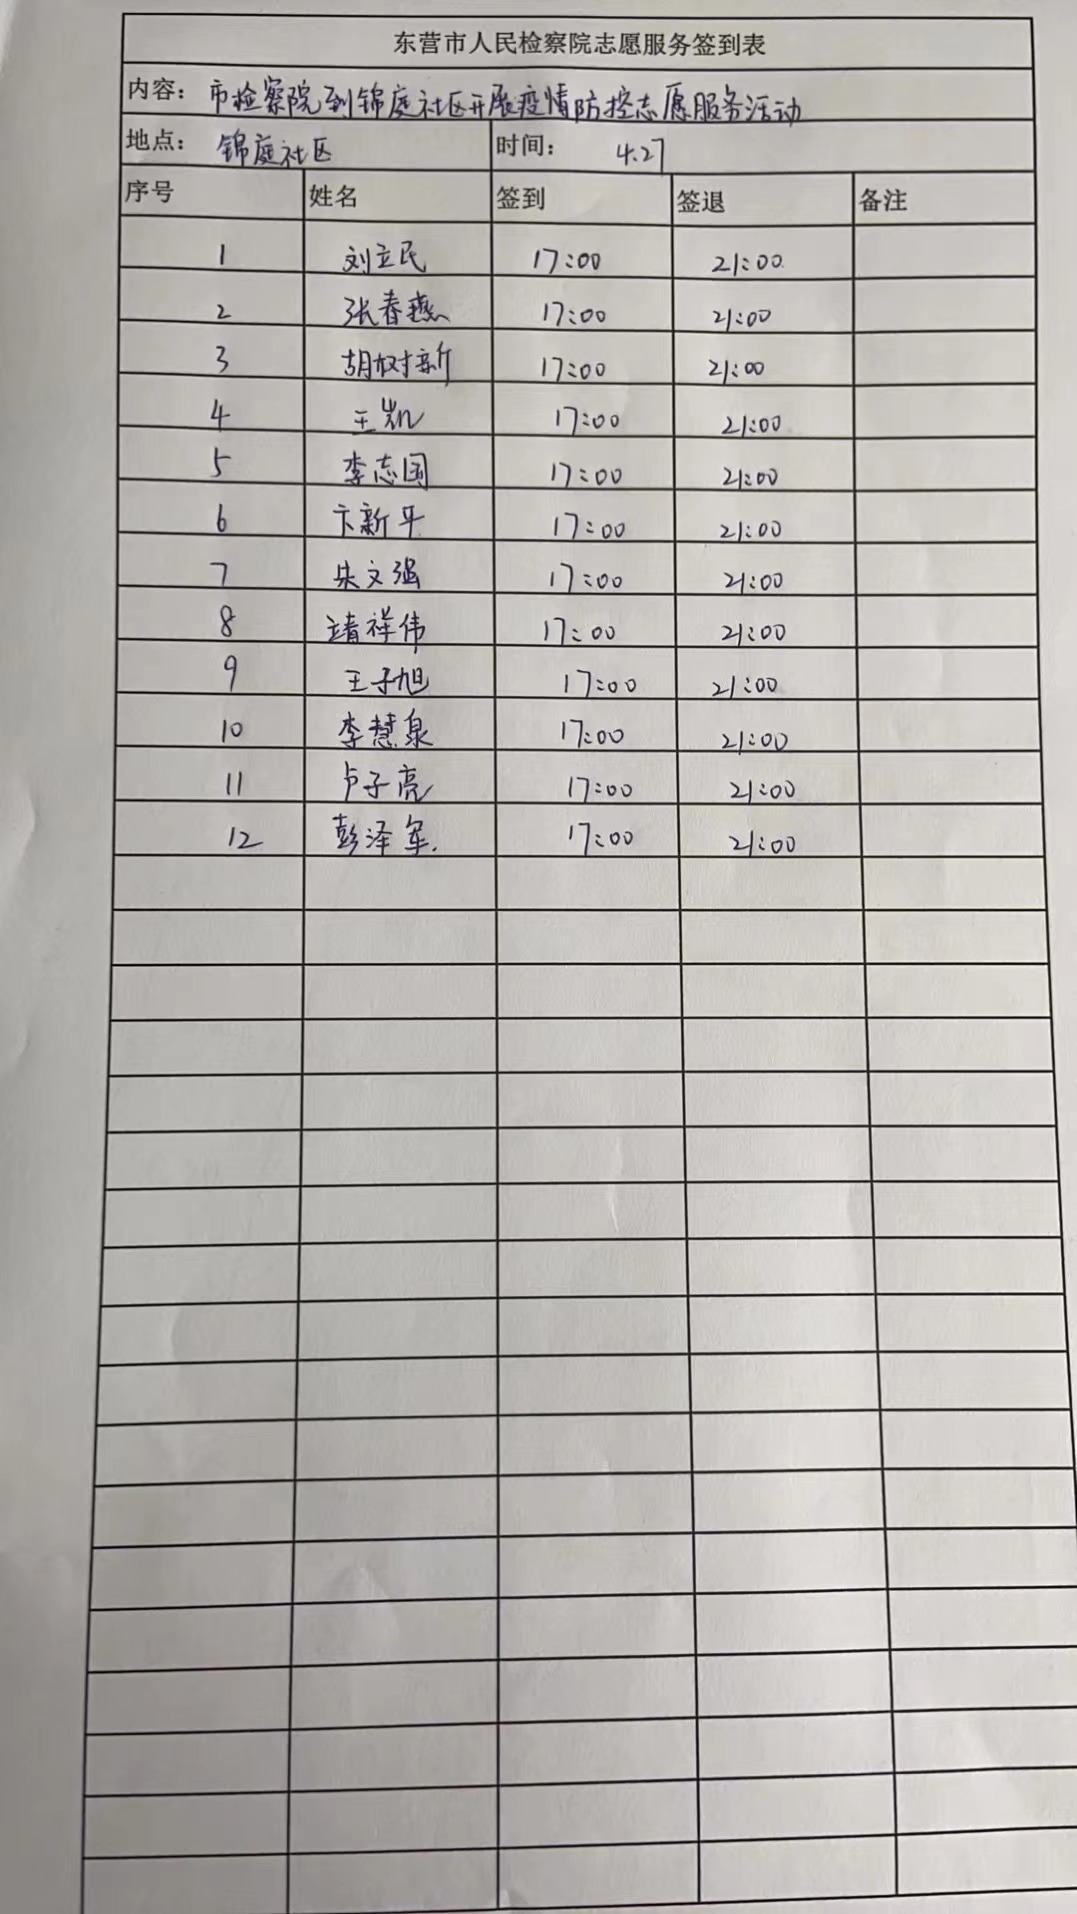 东营市人民检察院志愿服务签到表
内容： 市检察院到锦庭社区开展疫情防控志愿服务活动
地点： 锦庭社区 时间： 4.27
序号 姓名 签到 签退 备注
1 刘立民 17:00 21:00
2 张春燕 17:00 21:00
3 胡树新 17:00 21:00
4 王岩凡 17:00 21:00
5 李志国 17:00 21:00
6 卞新平 17:00 21:00
7 朱文强 17:00 21:00
8 靖祥伟 17:00 21:00
9 王子旭 17:00 21:00
10 李慧泉 17:00 21:00
11 卢子亮 17:00 21:00
12 彭泽军 17:00 21:00